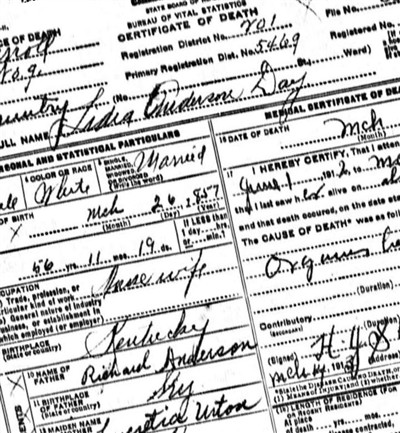 STATE BOARD OF
BUREAU OF VITAL STATISTICS
CERTIFICATE OF DEATH
CE OF DEATH
Registration District No. 201
File No.
No. 9.
Primary Registration Dist. No. 5469
Registered No.
(No. St.; Ward)
Country
ULL NAME Lidia Anderson Day
RSONAL AND STATISTICAL PARTICULARS
MEDICAL CERTIFICATE OF DEA
COLOR OR RACE
White
SINGLE, MARRIED, WIDOWED OR DIVORCED (Write the word)
Married
16 DATE OF DEATH mch
(Month)
17 I HEREBY CERTIFY, That I atten
OF BIRTH
mch 26 1857
(Month) (Day)
that I last saw h alive on
and that death occured, on the date state
The CAUSE OF DEATH* was as follow
56 yrs. 11 mos. 19 ds.
If LESS than
1 day, hrs.
or min.?
Organic
CUPATION
) Trade, profession, or
rticular kind of work
House wife
) General nature of industry
business, or establishment in
which employed (or employer)
(Duration)
Contributory
(Secondary)
BIRTHPLACE
(State or country)
Kentucky
(Duration)
10 NAME OF
FATHER
Richard Anderson
(Signed) H. J. S
(Address)
11 BIRTHPLACE
OF FATHER
(State or country)
Ky
*State the DISEASE CAUSING DEATH, or
(1) MEANS OF INJURY; and (2) whether
18 LENGTH OF RESIDENCE (FOR
OR RECENT RESIDENTS)
12 MAIDEN NAME
Urton
At place
of death yrs. mos.